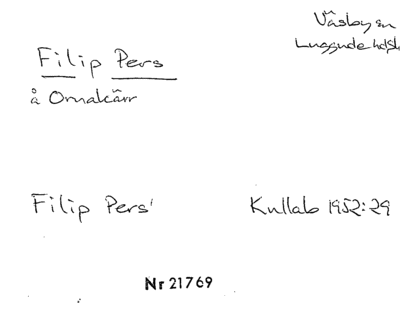 Väsby sn
Luggude hd
Filip Pers
å Ornakärr
Filip Pers'
Kullab 1952:29
Nr 21769